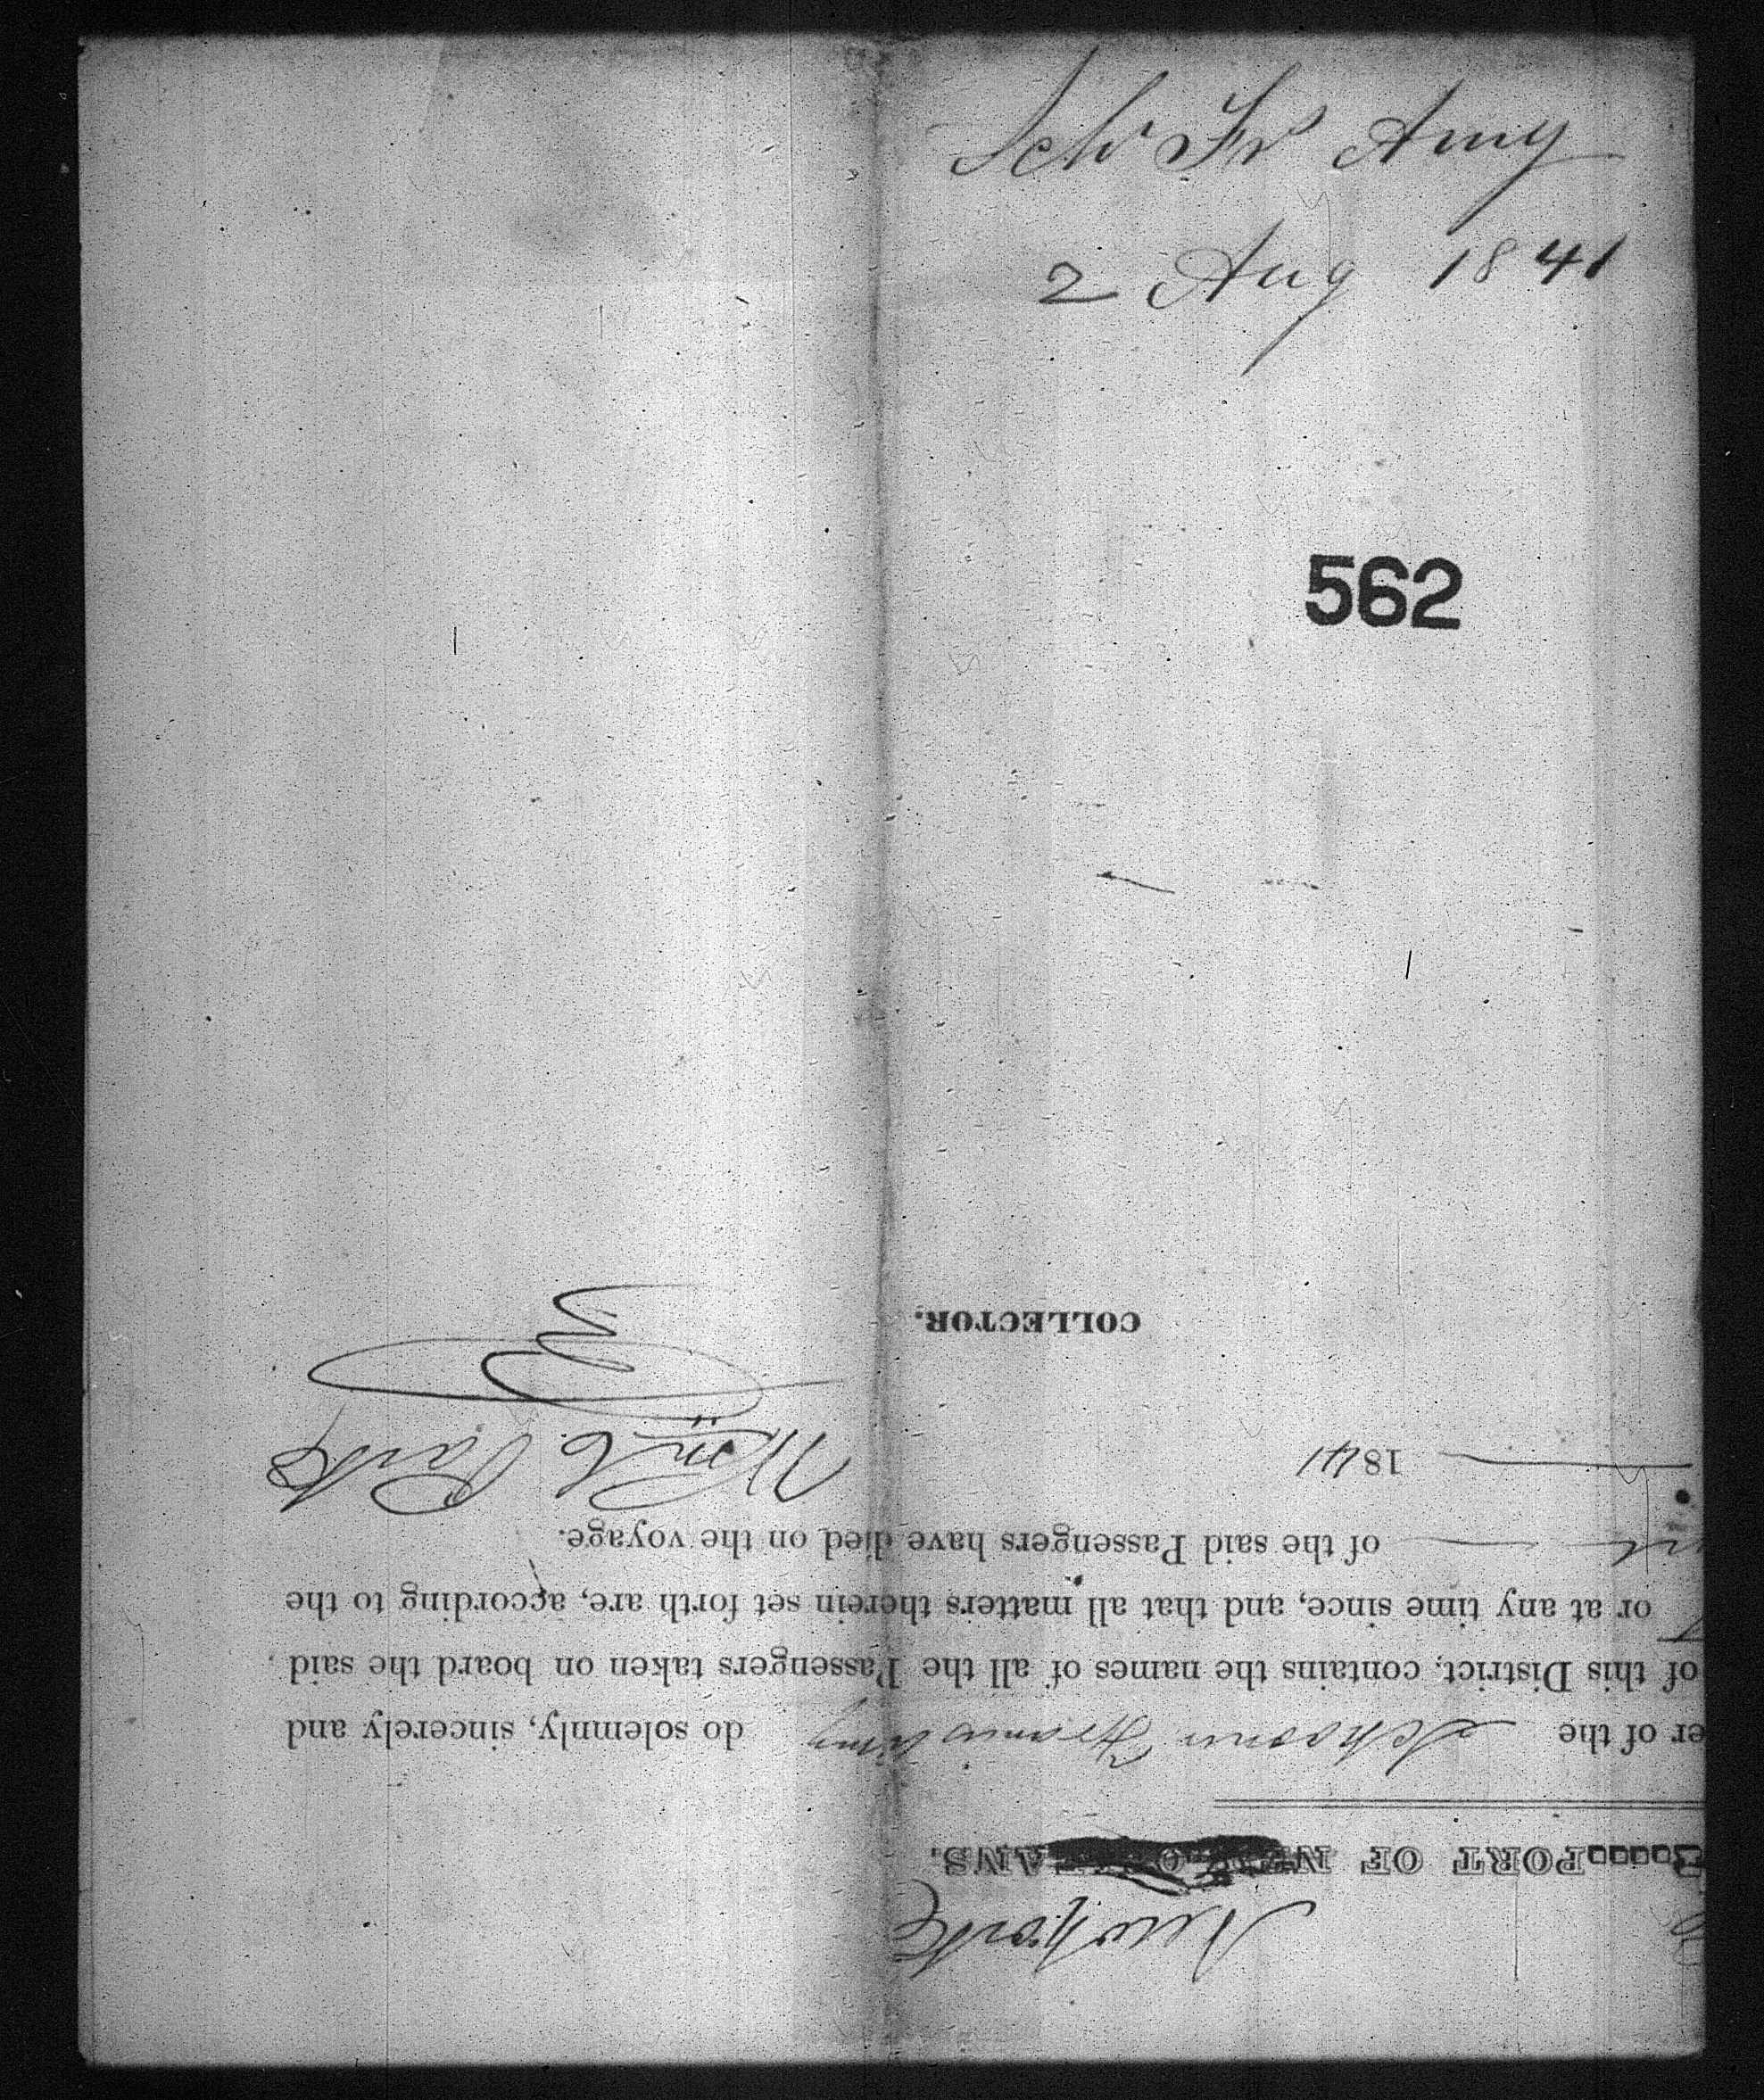 Schr Fr Amy
2 Aug 1841
562
New York
PORT OF NEW ORLEANS.
er of the Schooner Frances Amy do solemnly, sincerely and
of this District, contains the names of all the Passengers taken on board the said
or at any time since, and that all matters therein set forth are, according to the
of the said Passengers have died on the voyage.
1841
COLLECTOR.